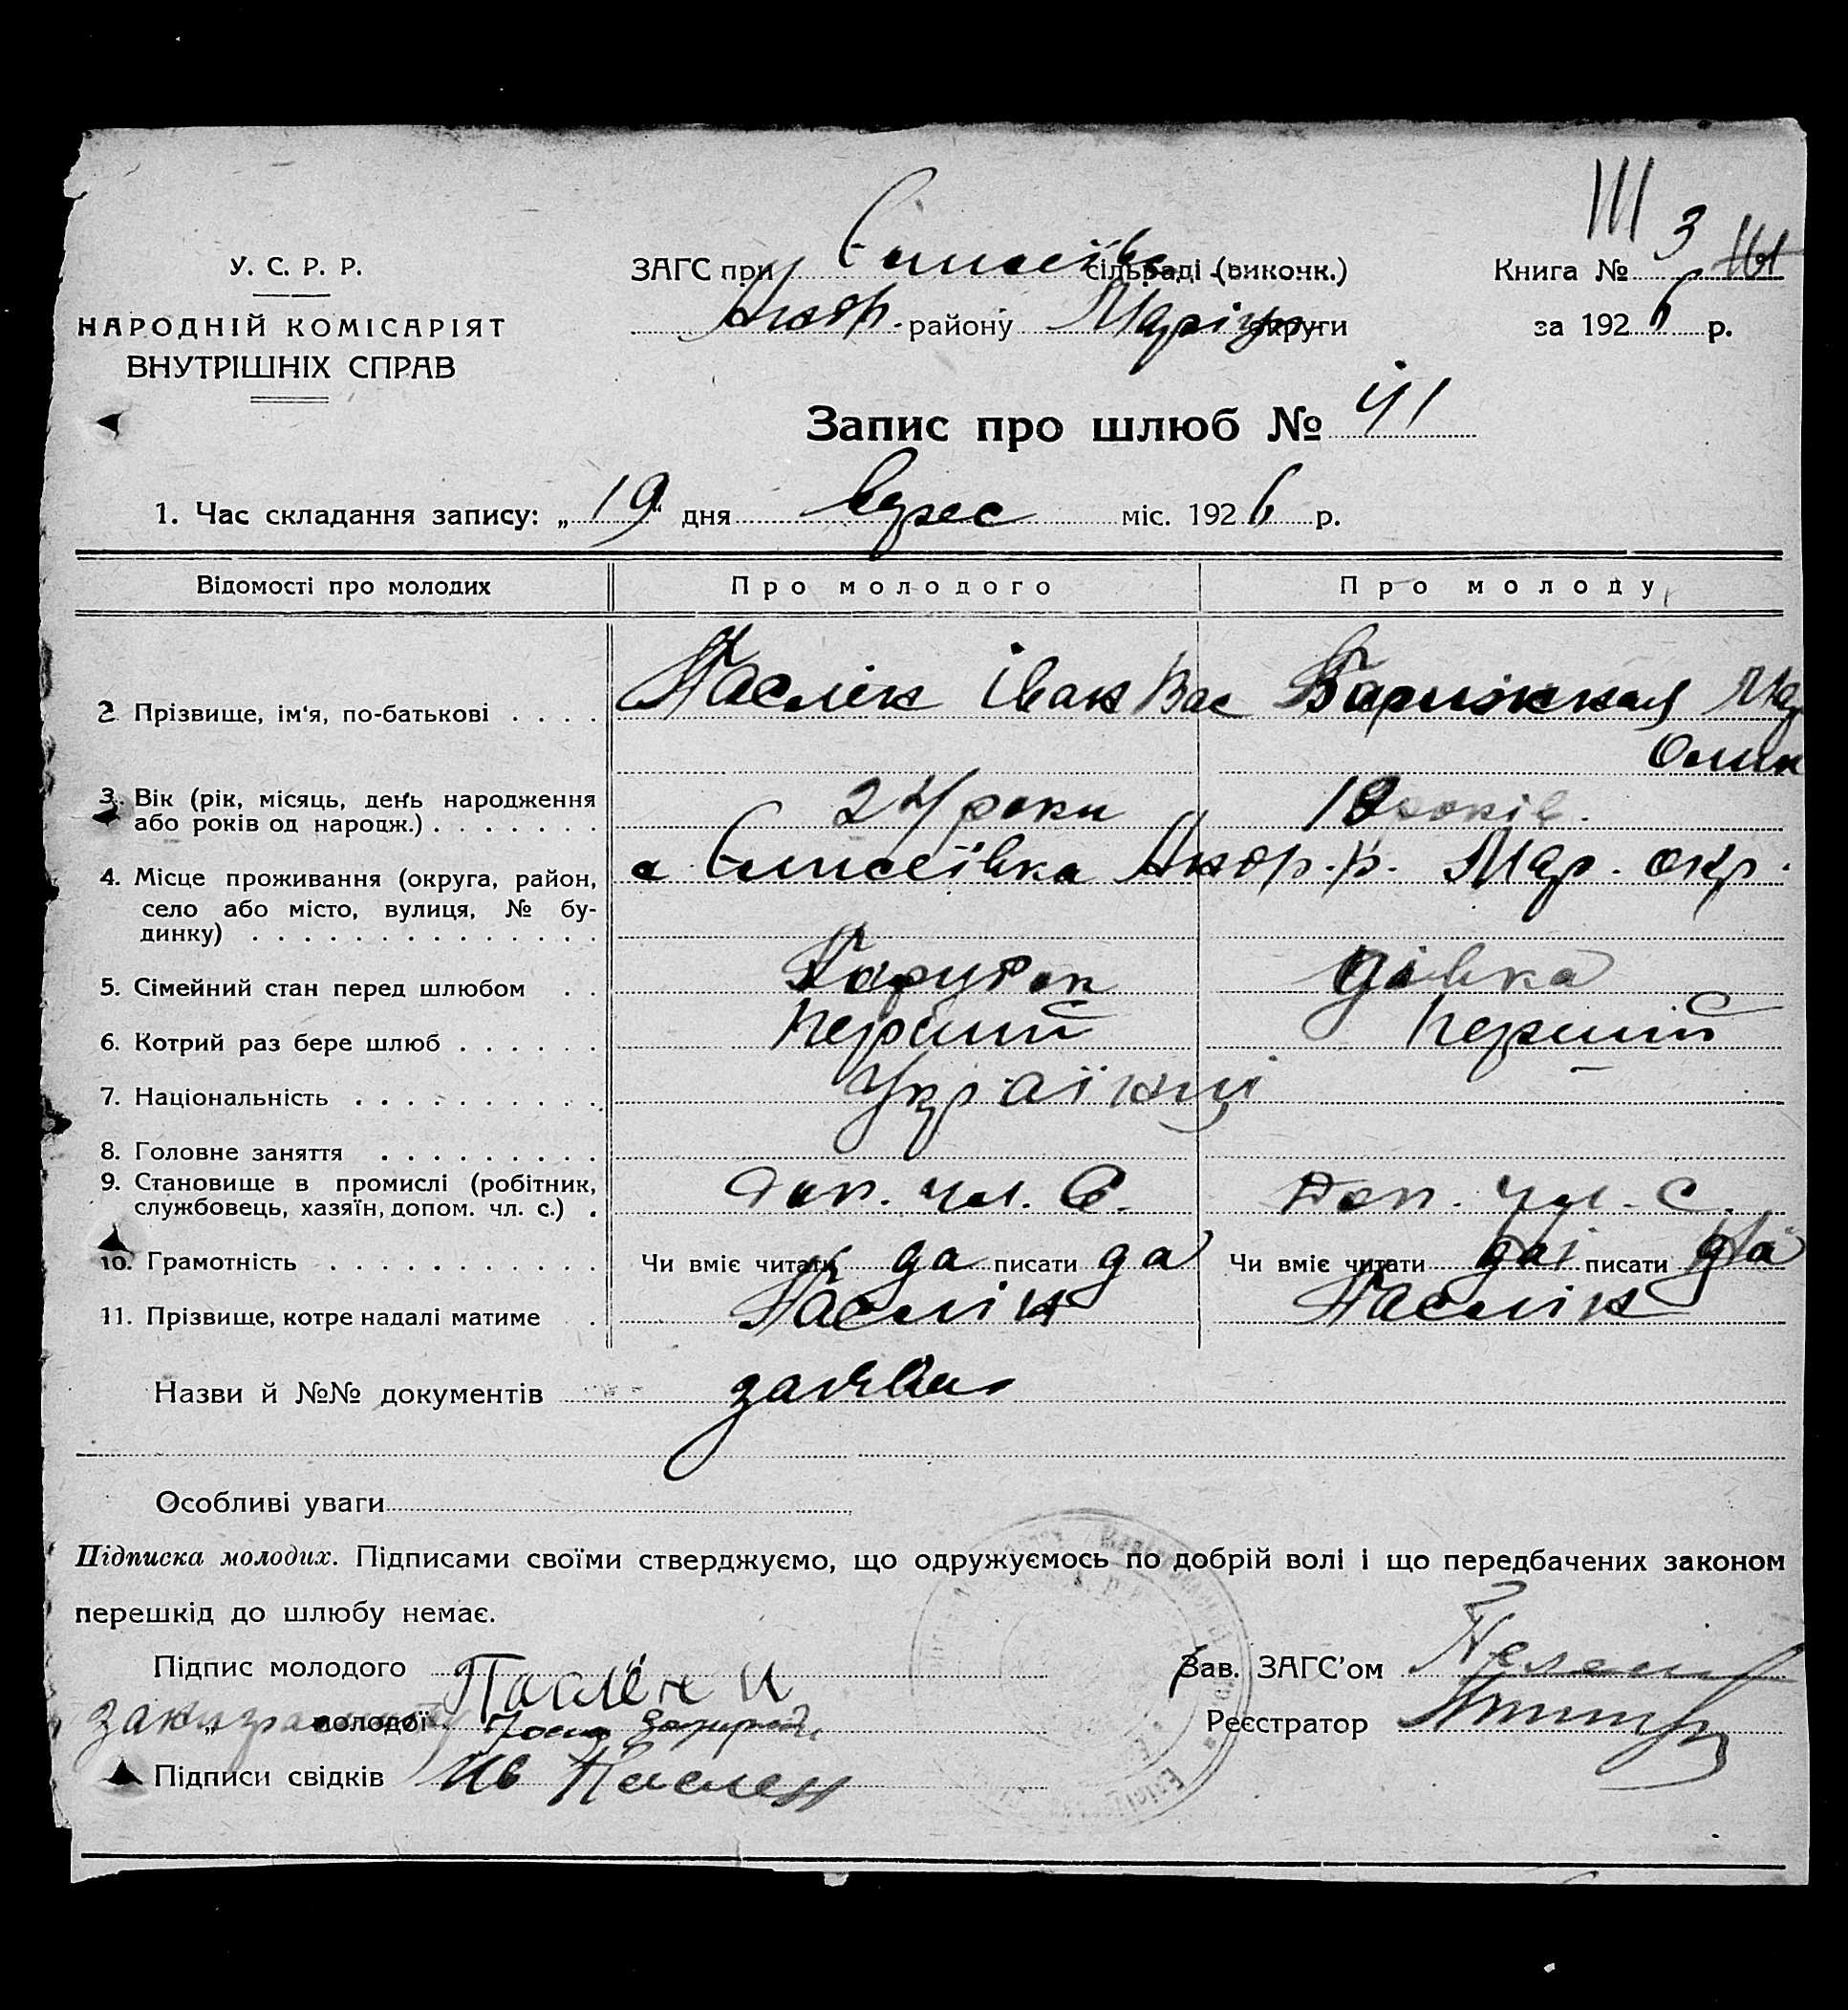 У. С. Р. Р.
НАРОДНІЙ КОМІСАРІЯТ
ВНУТРІШНІХ СПРАВ
ЗАГС при Єлисеївс сільраді (виконк.)
Андр. району Маріуп округи
III
Книга № 3
за 1926 р.
Запис про шлюб № 41
1. Час складання запису: „19“ дня верес міс. 1926 р.
Відомості про молодих Про молодого Про молоду
2 Прізвище, ім‘я, по-батькові . . . . Паслік Іван Вас Мар
3. Вік (рік, місяць, день народження
або років од народж.) . . . . . . . 24 роки 18 років.
4. Місце проживання (округа, район, с Єлисеївка Андр. р. Мар. окр.
село або місто, вулиця, № бу-
динку) . . . . . . . . . . . . . .
5. Сімейний стан перед шлюбом . . Парубок дівка
6. Котрий раз бере шлюб . . . . . . перший перший
7. Національність . . . . . . . . . . Українці
8. Головне заняття . . . . . . . . .
9. Становище в промислі (робітник,
службовець, хазяїн, допом. чл. с.) . Доп. чл. С. Доп. чл. С.
10. Грамотність . . . . . . . . . . . Чи вміє читати да писати да Чи вміє читати да писати да
11. Прізвище, котре надалі матиме . Паслік Паслік
Назви й №№ документів заяви
Особливі уваги
Підписка молодих. Підписами своїми стверджуємо, що одружуємось по добрій волі і що передбачених законом
перешкід до шлюбу немає.
Підпис молодого Паслён И
Зав. ЗАГС’ом
„ молодої
Реєстратор
Підписи свідків Ив Паслен